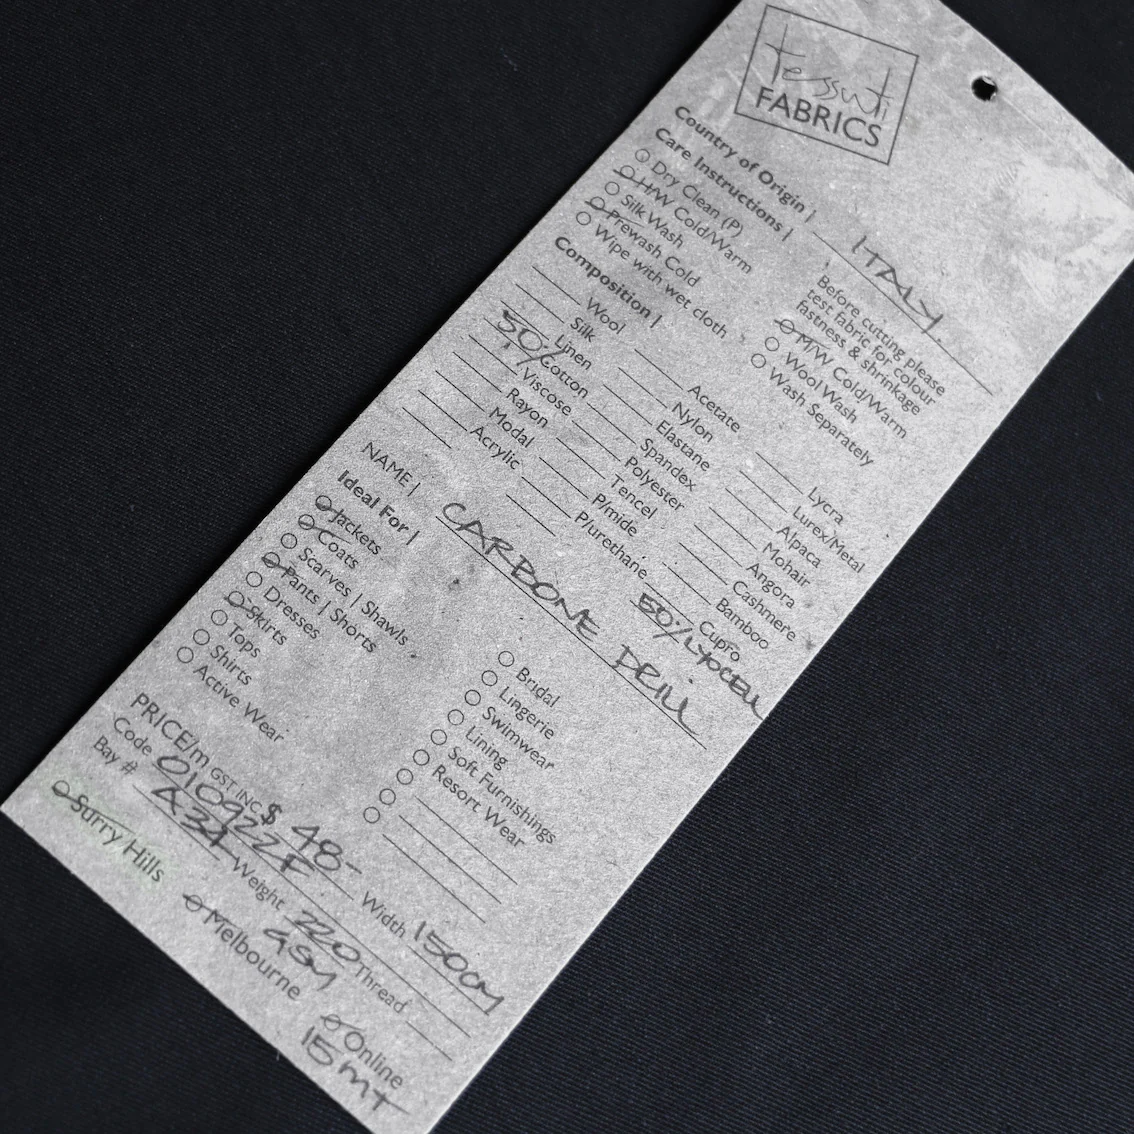 tessuti
FABRICS
Country of Origin | ITALY.
Care Instructions |
Dry Clean (P)
H/W Cold/Warm
Silk Wash
Prewash Cold
Wipe with wet cloth
Before cutting please
test fabric for colour
fastness & shrinkage
M/W Cold/Warm
Wool Wash
Wash Separately
Composition |
Wool
Silk
Linen
50% Cotton
Viscose
Rayon
Modal
Acrylic
Acetate
Nylon
Elastane
Spandex
Polyester
Tencel
P/mide
P/urethane
Lycra
Lurex/Metal
Alpaca
Mohair
Angora
Cashmere
Bamboo
Cupro
50% LYOCELL
NAME | CARBONE DRILL
Ideal For |
Jackets
Coats
Scarves | Shawls
Pants | Shorts
Dresses
Skirts
Tops
Shirts
Active Wear
Bridal
Lingerie
Swimwear
Lining
Soft Furnishings
Resort Wear
PRICE/m GST INC $ 48- Width 150cm
Code 010922F Weight 220 GSM Thread
Bay # A34
Surry Hills Melbourne Online
15mt